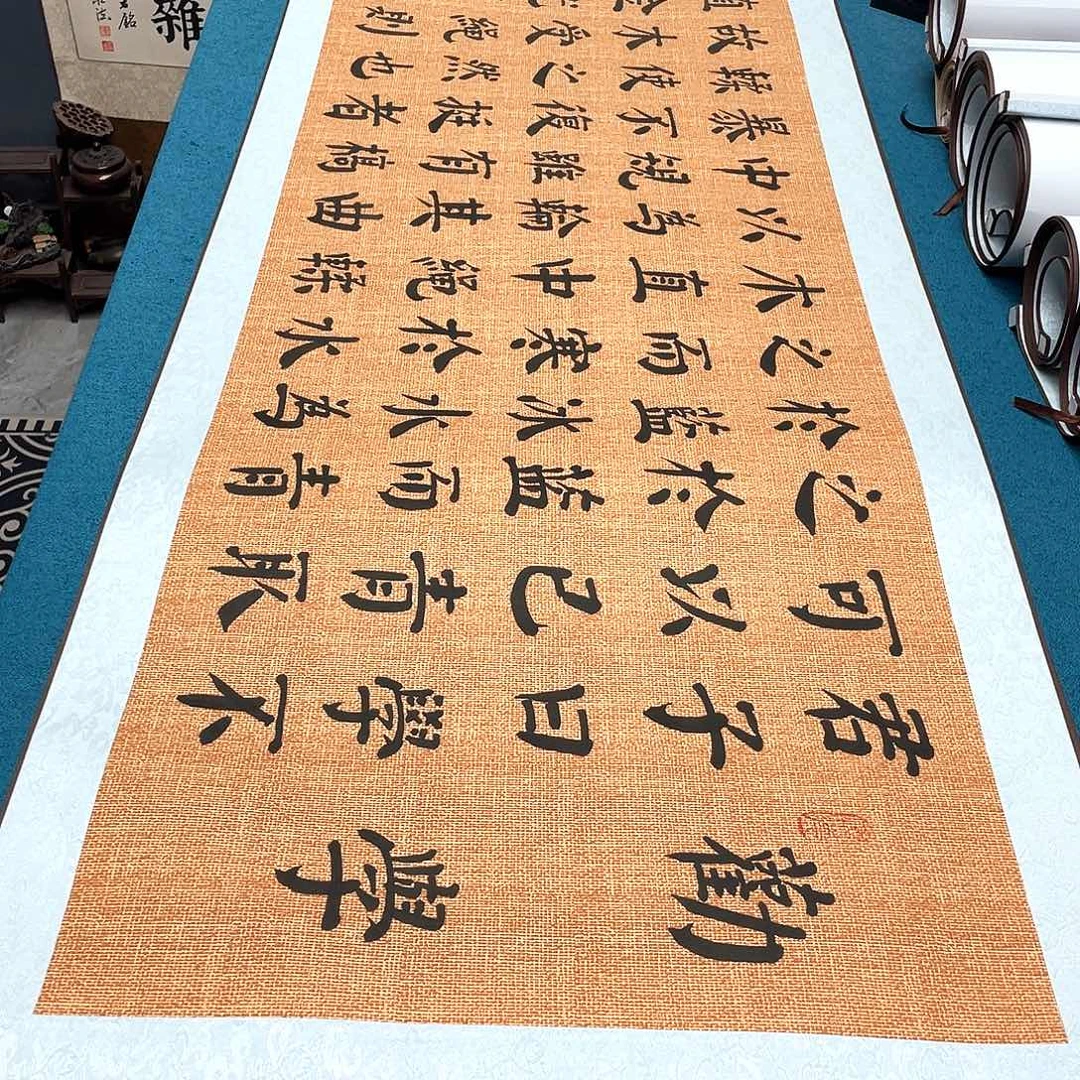 勸學
君子曰學不
可以已青取
之於藍而青
於藍冰水為
之而寒於水
木直中繩輮
以為輪其曲
中規雖有槁
暴不復挺者
輮使之然也
故木受繩則
直金
雜
銘